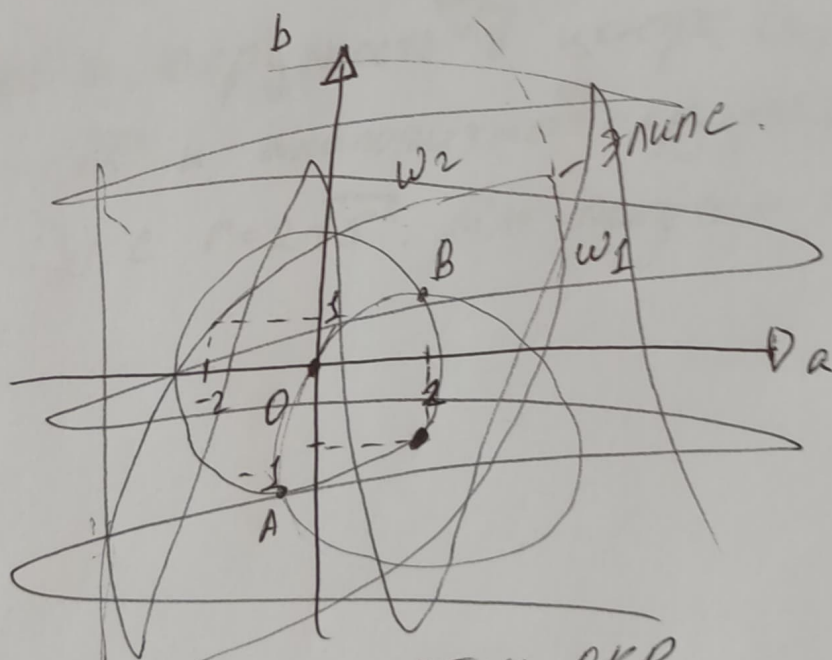 b
эллипс.
w2
w1
B
1
a
-2
O
2
-1
A